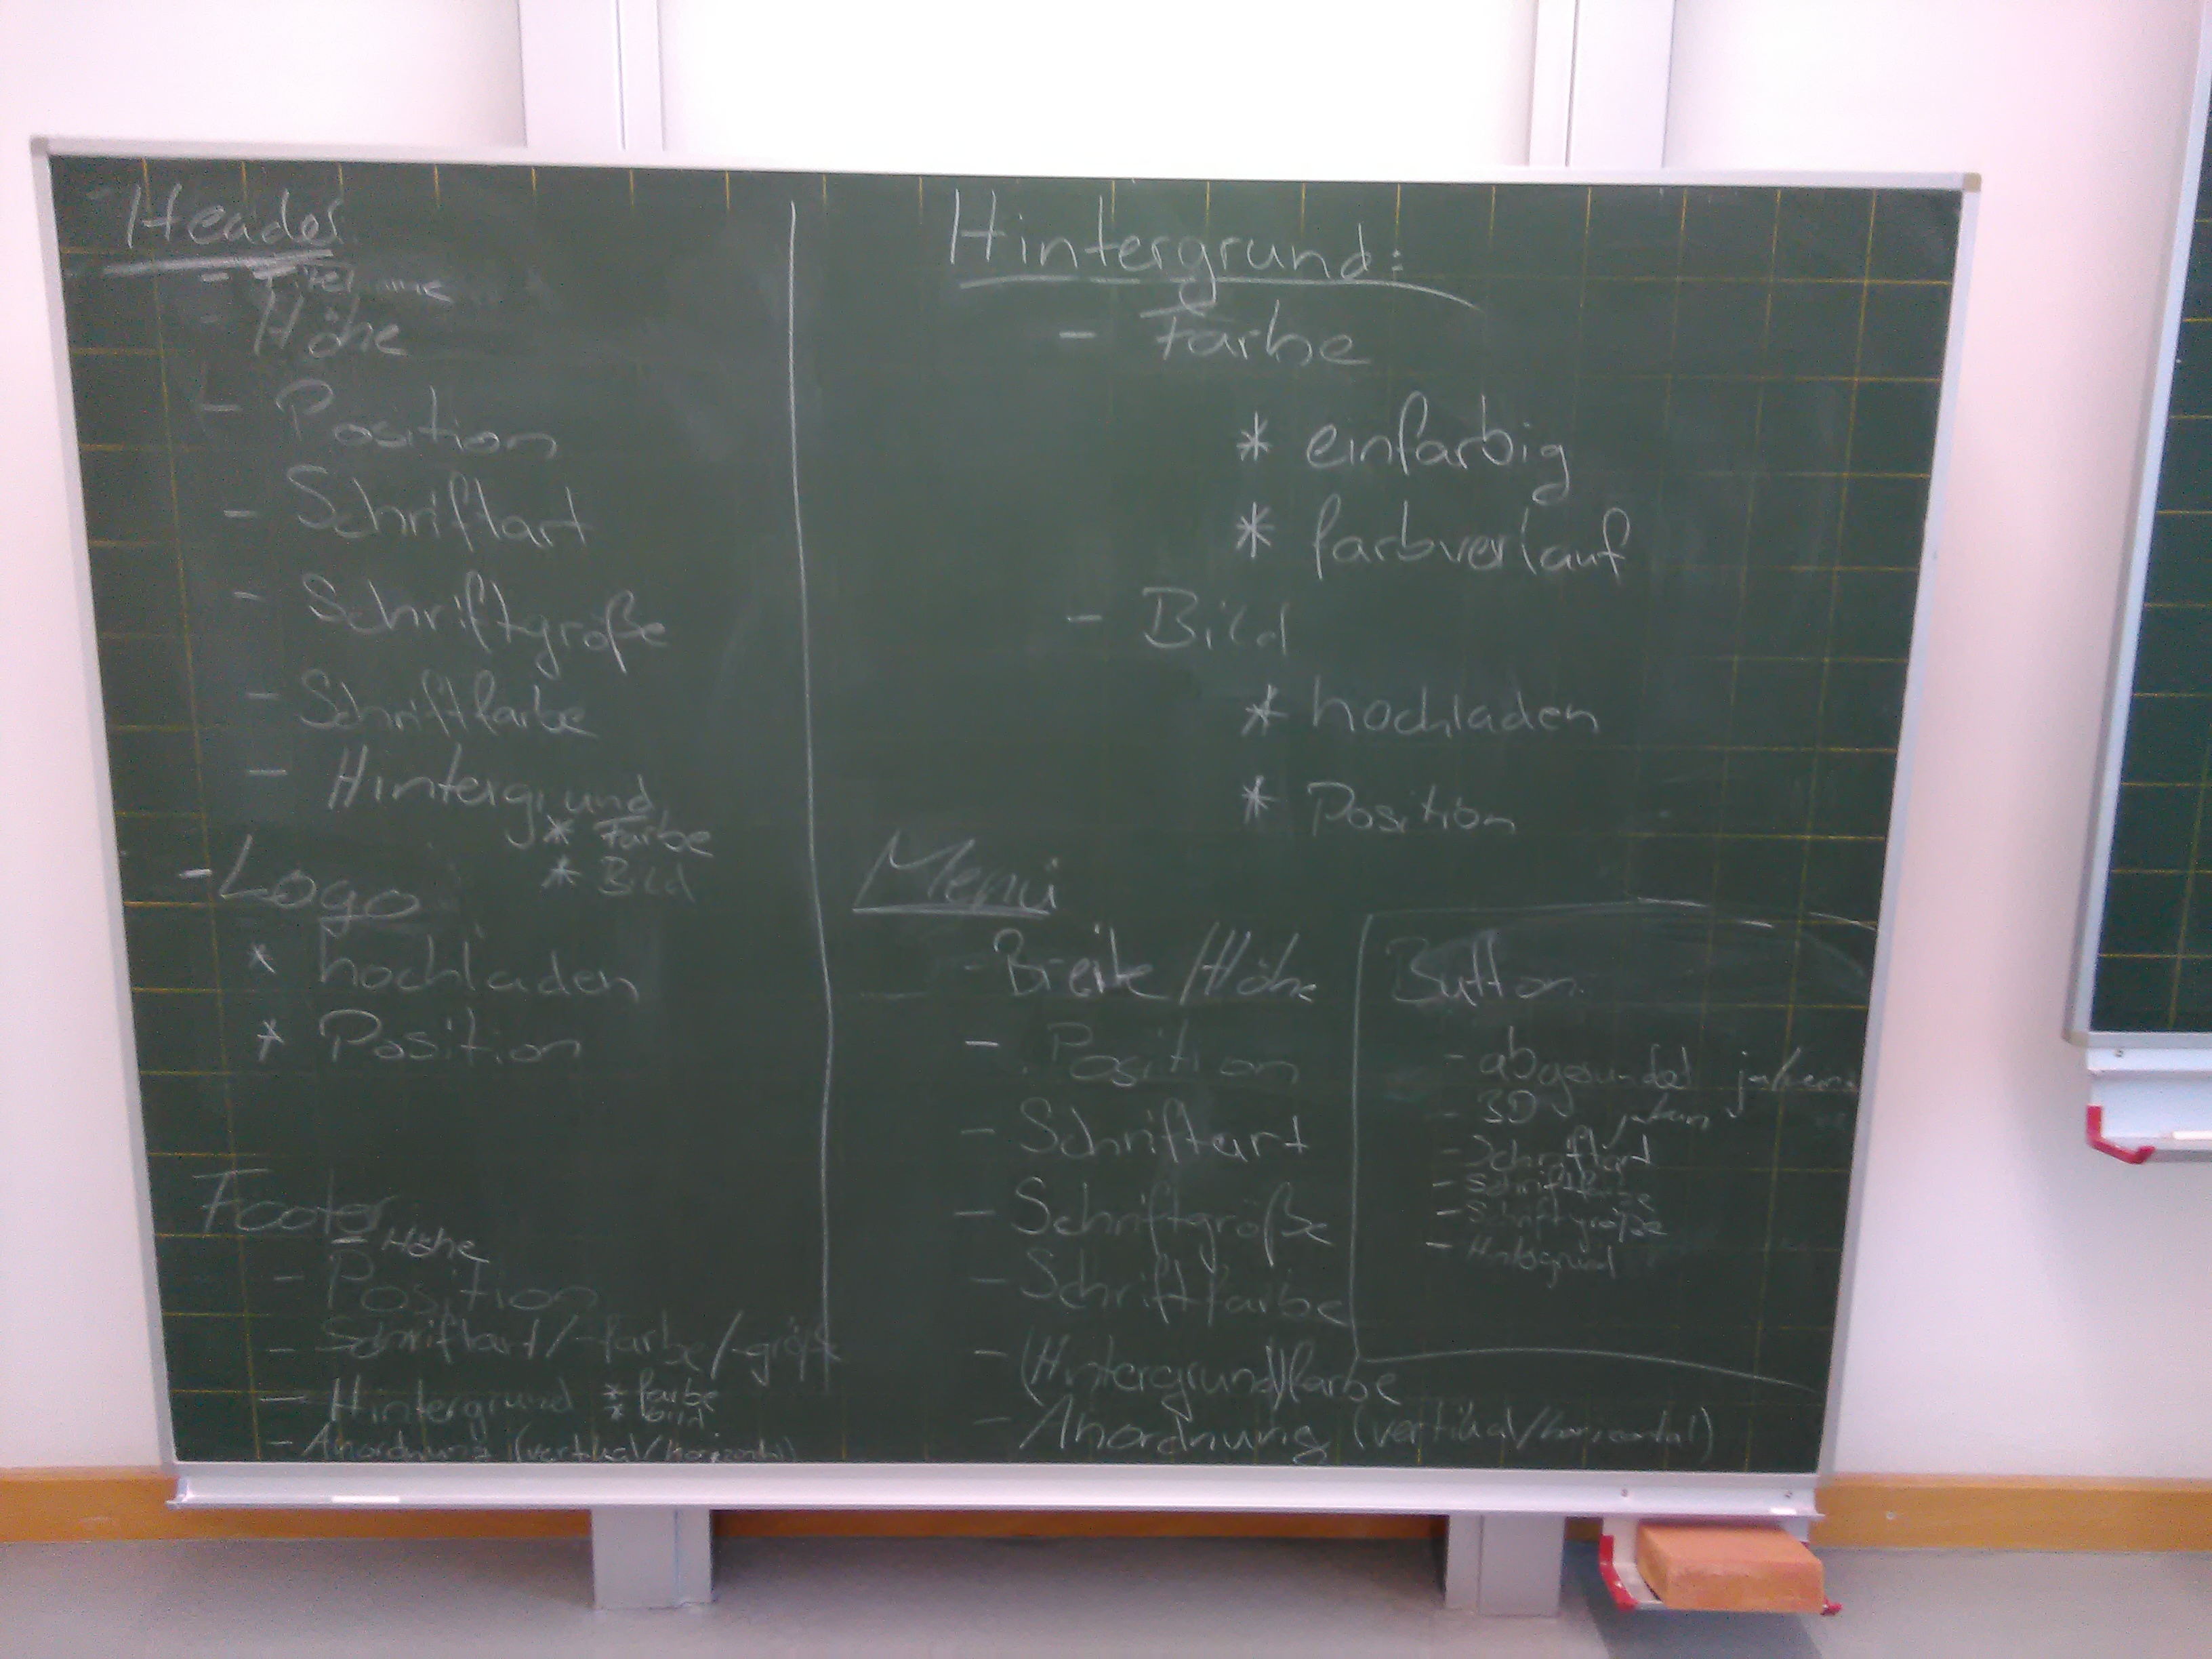 Header
-
- Höhe
- Position
- Schriftart
- Schriftgröße
- Schriftfarbe
- Hintergrund
* Farbe
* Bild
- Logo
* hochladen
* Position
Footer
- Höhe
- Position
- Schriftart/-farbe/-größe
- Hintergrund * farbe
* bild
- Anordnung (vertikal/horizontal)
Hintergrund:
- Farbe
* einfarbig
* farbverlauf
- Bild
* hochladen
* Position
Menü
- Breite/Höhe
- Position
- Schriftart
- Schriftgröße
- Schriftfarbe
- (Hintergrund)farbe
- Anordnung (vertikal/horizontal)
Button
- abgerundet ja/nein
- 3D ja/nein
- Schriftart
- Schriftfarbe
- Schriftgröße
- Hintergrund